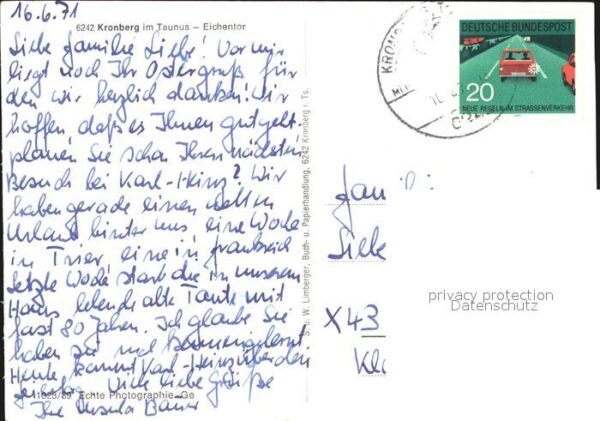 16.6.71
6242 Kronberg im Taunus – Eichentor
Liebe Familie Liebe! Vor mir
liegt noch Ihr Ostergruß für
den wir herzlich danken! Wir
hoffen, daß es Ihnen gut geht.
planen Sie schon Ihren nächsten
Besuch bei Karl-Heinz? Wir
haben gerade einen netten
Urlaub hinter uns, eine Woche
in Trier, eine in Frankreich
letzte Woche starb die in unserem
Haus lebende alte Tante mit
fast 80 Jahren. Ich glaube Sie
haben sie noch kennengelernt.
Heute kommt Karl-Heinz über den
Viele liebe Grüße
Ihre Ursula
1623/89 Echte Photographie
S. L. W. Limberger, Buch- u. Papierhandlung, 6242 Kronberg i. Ts.
KRONB
DEUTSCHE BUNDESPOST
20
NEUE REGELN IM STRASSENVERKEHR
Fami
Liebe
privacy protection
Datenschutz
X43